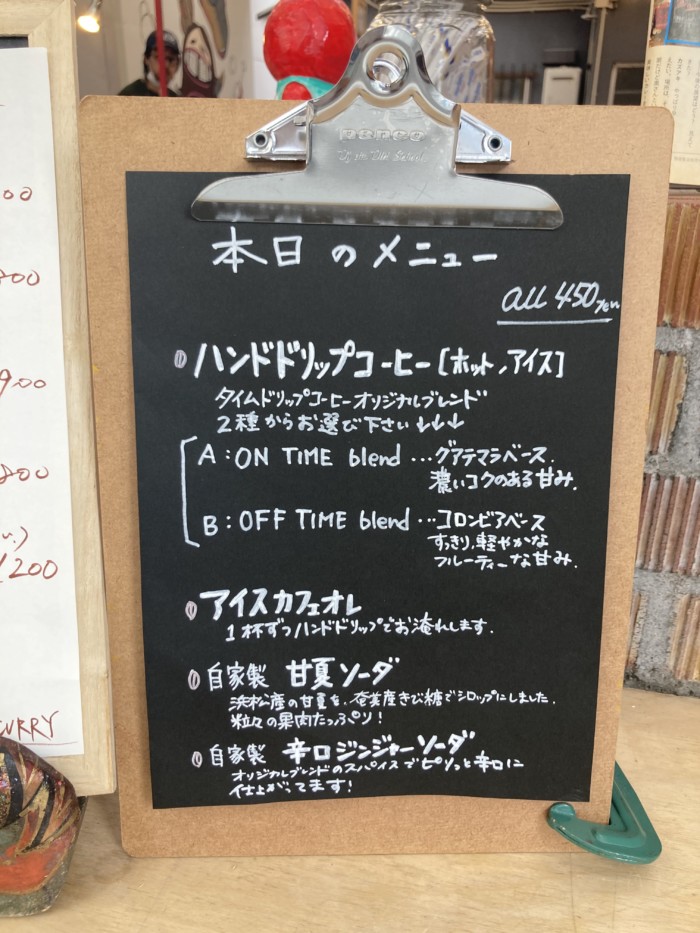 本日のメニュー
all 450yen
ハンドドリップコーヒー[ホット,アイス]
タイムドリップコーヒーオリジナルブレンド
2種からお選び下さい↓↓↓
A:ON TIME blend…グアテマラベース.
濃いコクのある甘み.
B:OFF TIME blend…コロンビアベース
すっきり,軽やかな
フルーティーな甘み.
アイスカフェオレ
1杯ずつハンドドリップでお淹れします.
自家製 甘夏ソーダ
浜松産の甘夏を、奄美産きび糖でシロップにしました.
粒々の果肉たっぷり!
自家製 辛口ジンジャーソーダ
オリジナルブレンドのスパイスでピリっと辛口に
仕上がってます!
900
1200
CURRY